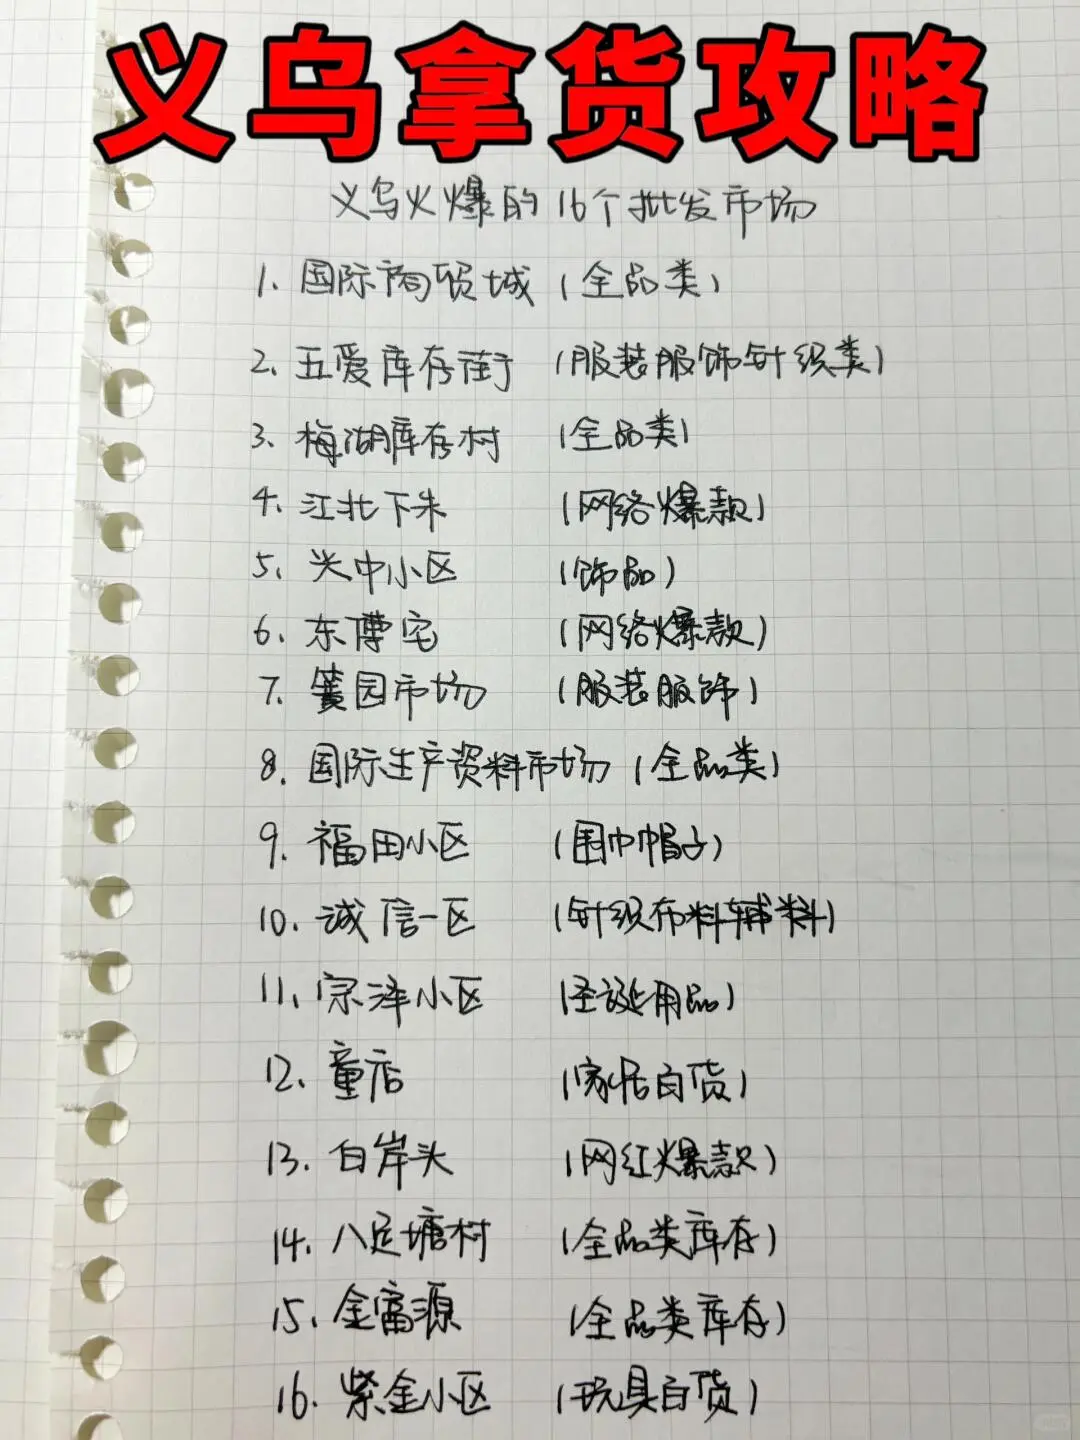 义乌拿货攻略
义乌火爆的16个批发市场
1. 国际商贸城 (全品类)
2. 五爱库存街 (服装服饰针织类)
3. 梅湖库存村 (全品类)
4. 江北下朱 (网络爆款)
5. 兴中小区 (饰品)
6. 东傅宅 (网络爆款)
7. 篁园市场 (服装服饰)
8. 国际生产资料市场 (全品类)
9. 福田小区 (围巾帽子)
10. 诚信一区 (针织布料辅料)
11. 宗泽小区 (圣诞用品)
12. 童店 (家居百货)
13. 白岸头 (网红爆款)
14. 八足塘村 (全品类库存)
15. 金富源 (全品类库存)
16. 紫金小区 (玩具百货)